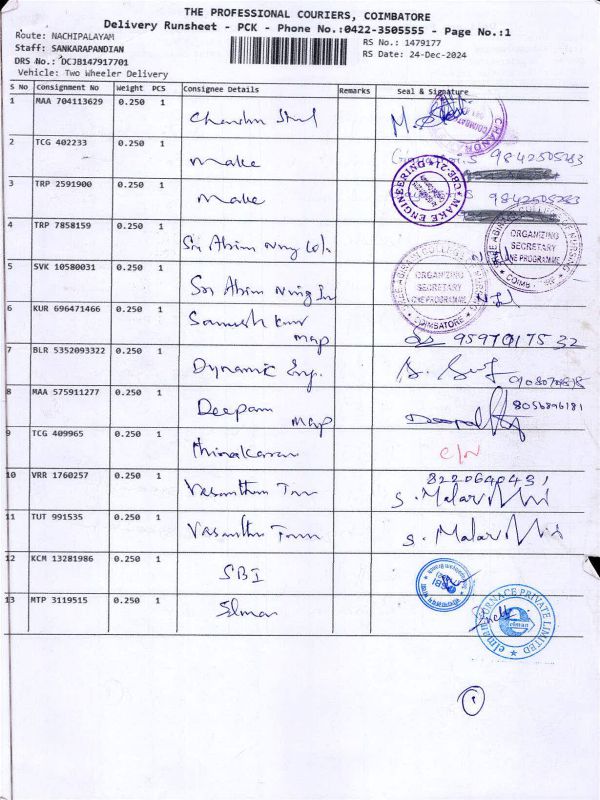 THE PROFESSIONAL COURIERS, COIMBATORE
Delivery Runsheet - PCK - Phone No.:0422-3505555 - Page No.:1
Route: NACHIPALAYAM
RS No.: 1479177
Staff: SANKARAPANDIAN
RS Date: 24-Dec-2024
DRS No.: DCJB147917701
Vehicle: Two Wheeler Delivery
S No Consignment No Weight PCS Consignee Details Remarks Seal & Signature
1 MAA 704113629 0.250 1
2 TCG 402233 0.250 1 make 9842505283
3 TRP 2591900 0.250 1 make 9842505283
MAKE ENGINEERING CBE-21
4 TRP 7858159 0.250 1 Sri Abirm
ORGANIZING
SECRETARY
NE PROGRAMME
5 SVK 10580031 0.250 1 Sri Abirm
ORGANIZING
SECRETARY
NE PROGRAMME
COIMBATORE
6 KUR 696471466 0.250 1 map 9597017532
7 BLR 5352093322 0.250 1 Dynamic Eng.
8 MAA 575911277 0.250 1 Deepam map 8056896181
9 TCG 409965 0.250 1 Thinakaran
10 VRR 1760257 0.250 1 8220640431
S. Malar
11 TUT 991535 0.250 1 S. Malar
12 KCM 13281986 0.250 1 SBI SBI
13 MTP 3119515 0.250 1 Elman
elman FURNACE PRIVATE LIMITED
elman
1